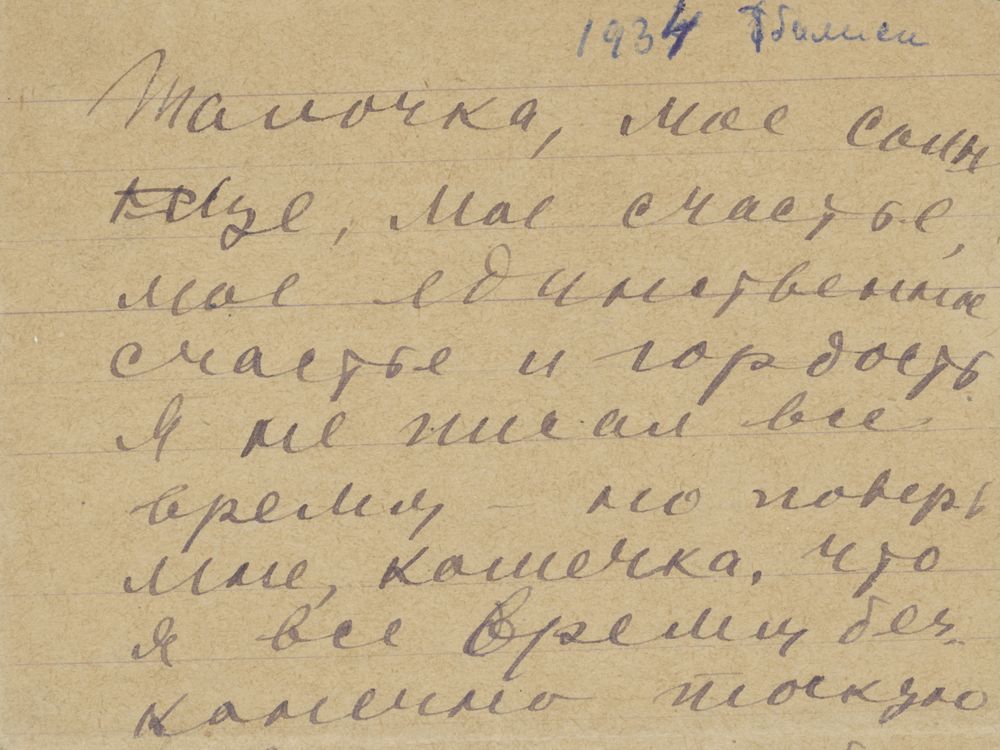 1934 Тбилиси
Талочка, мое солн
це, мое счастье,
мое единственное
счастье и гордость
Я не писал все
время – но поверь
мне, кошечка, что
я все время бес-
конечно тоскую